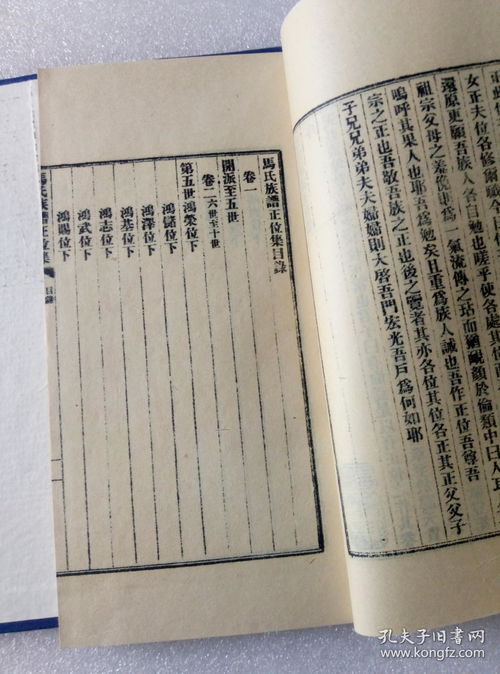 女正夫位
還原更願吾族人各自勉也嗟乎使各處其
祖宗父母之羞俾毋爲一氣流傳之玷而靦顏於倫類中曰
嗚呼其果人也耶吾爲勉矣且重爲族人誡也吾作正位吾尊吾
宗之正也吾敬吾族之正也後之覽者其亦各位其位各正其正父父子
子兄兄弟弟夫夫婦婦則大啓吾門宏光吾戶爲何如耶
馬氏族譜正位集目錄
卷一
開派至五世
卷二六世至十世
第五世鴻槃位下
鴻儲位下
鴻澤位下
鴻基位下
鴻志位下
鴻武位下
鴻賜位下
馬氏族譜正位集 目錄
孔夫子旧书网
www.kongfz.com